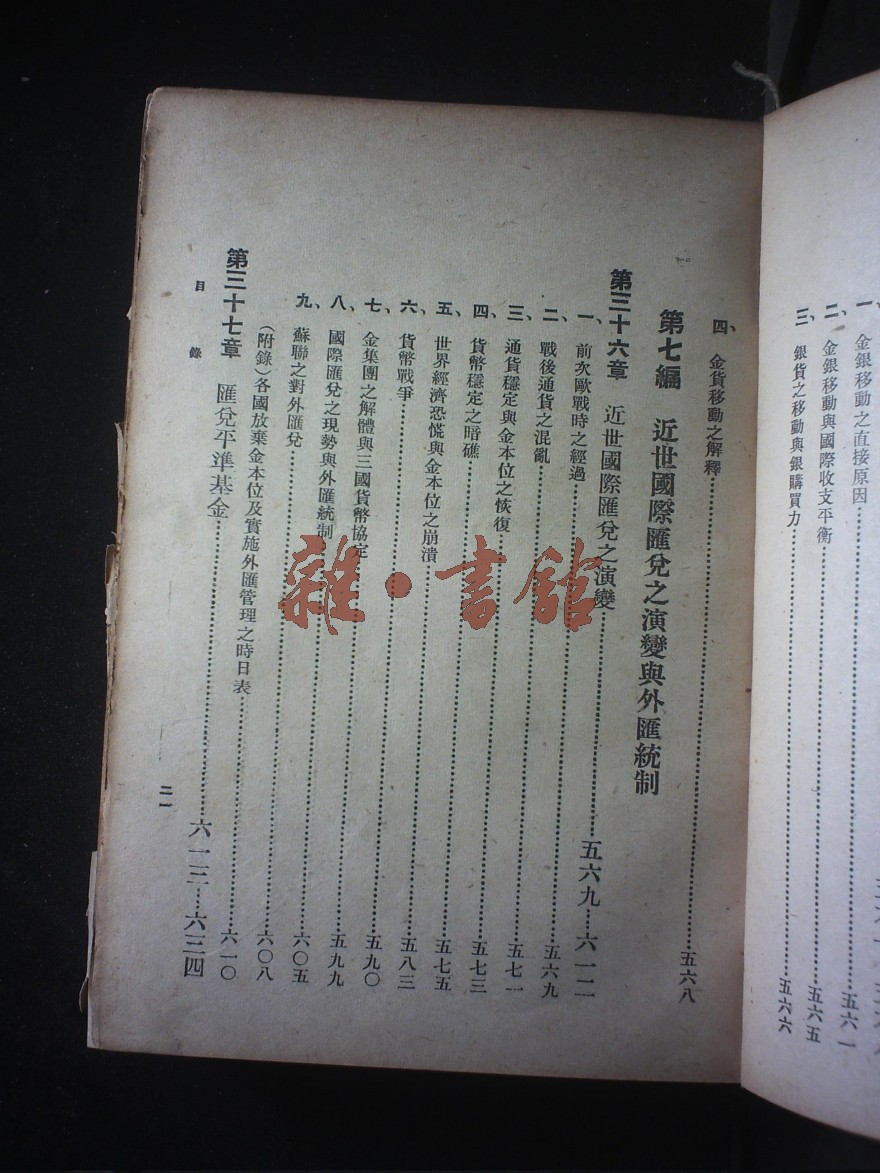 一、金銀移動之直接原因……五六一
二、金銀移動與國際收支平衡……五六五
三、銀貨之移動與銀購買力……五六六
四、金貨移動之解釋……五六八
第七編 近世國際匯兌之演變與外匯統制
第三十六章 近世國際匯兌之演變……五六九—六一二
一、前次歐戰時之經過……五六九
二、戰後通貨之混亂……五七一
三、通貨穩定與金本位之恢復……五七三
四、貨幣穩定之暗礁……五七五
五、世界經濟恐慌與金本位之崩潰……五八三
六、貨幣戰爭……五九〇
七、金集團之解體與三國貨幣協定……五九九
八、國際匯兌之現勢與外匯統制……六〇五
九、蘇聯之對外匯兌……六〇八
（附錄）各國放棄金本位及實施外匯管理之時日表……六一〇
第三十七章 匯兌平準基金……六一三—六三四
目錄 二一
雜·書館